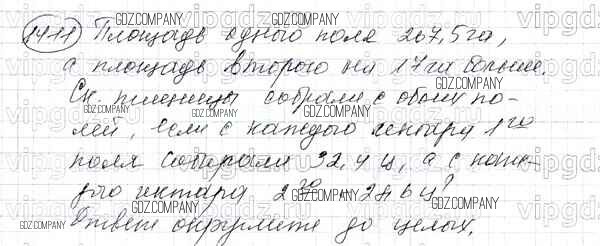 1411 Площадь одного поля 267,5га,
а площадь второго на 17га больше.
Ск. пшеницы собрали с обоих по-
лей, если с каждого гектара 1го
поля собирали 32,4 ц, а с каж-
дого гектара 2го - 28,6 ц?
Ответ округлите до целых.
GDZ.COMPANY
vipgdz.ru